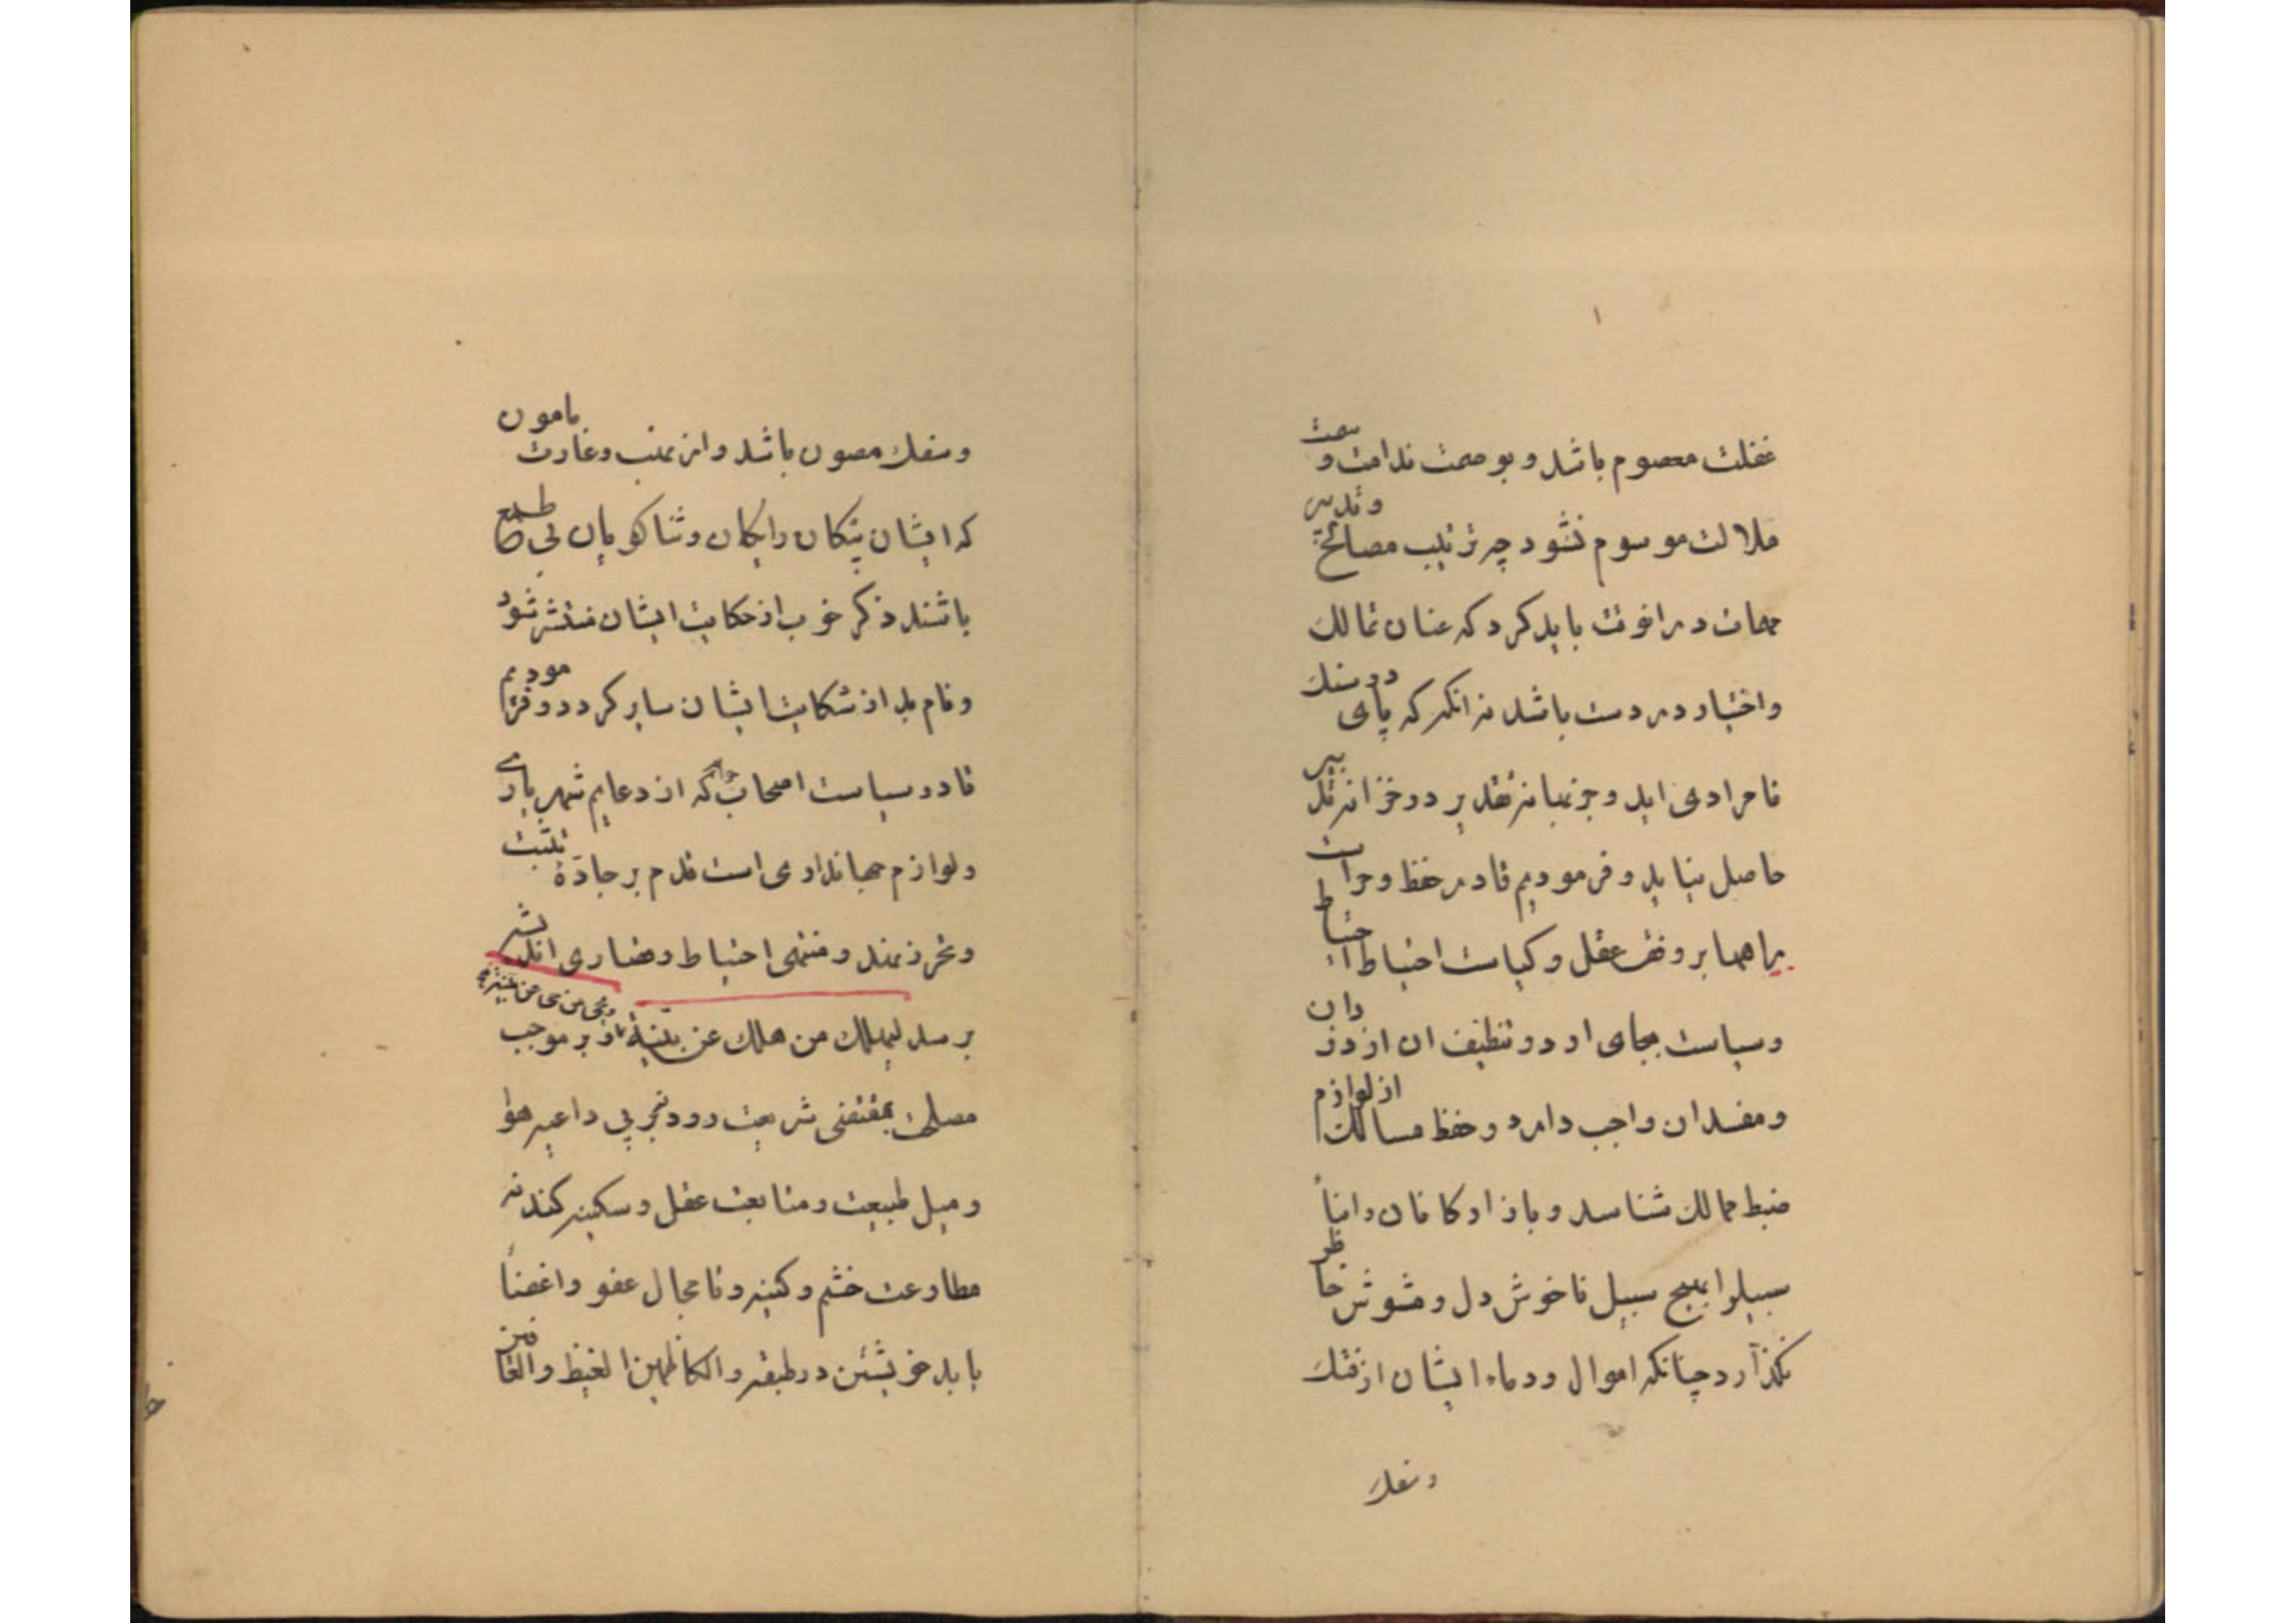 غفلت معصوم باشد و بوصمت ندامت و سمت
ملالت موسوم نشود چه ترتیب مصالح و تدبیر
مهمات در انوقت باید کرد که عنان تمالك
واختیار در دست باشد نه انکه که پای در سنك
نامرادی اید و جز نبا نه تقدیر در خزانه تدبیر
حاصل نیاید و فرمودیم تا در حفظ و حراست
راهها بر وفق عقل و کیاست احتیاط احتیاط
وسیاست بجای اورد و تنظیف ان از دزدان
ومفسدان واجب دارد و حفظ مسالك از لوازم
ضبط ممالك شناسد و بازارکانان وابنا
سبیلرا بهیچ سبیل ناخوش دل و مشوش خاطر
نکذارد چنانکه اموال ودماء ایشان از فتك
وسفك
وسفك مصون باشد واز نهب وغارت مامون
که ایشان پیکان رایکان وثنا کویان بی طمع
باشند ذکر خوب از حکایت ایشان منتشر شود
ونام بد از شکایت ایشان سایر کردد و فرمودیم
تا در سیاست اصحاب جرایم که از دعایم شهریاری
ولوازم جهانداری است قدم بر جادۀ تثبت
وتحرز نهند ومنتهی احتیاط وقصاری اندیشه
برسد لیهلك من هلك عن بینة ویحیی من حی عن بینة واز بر موجب
مصلحت بمقتضی شریعت رود تحری داعیه هوا
ومیل طبیعت ومتابعت عقل وسکینه کند نه
مطاوعت خشم وکینه و تا مجال عفو واغضا
یابد خویشتن در طبقه والکاظمین الغیظ والعافین